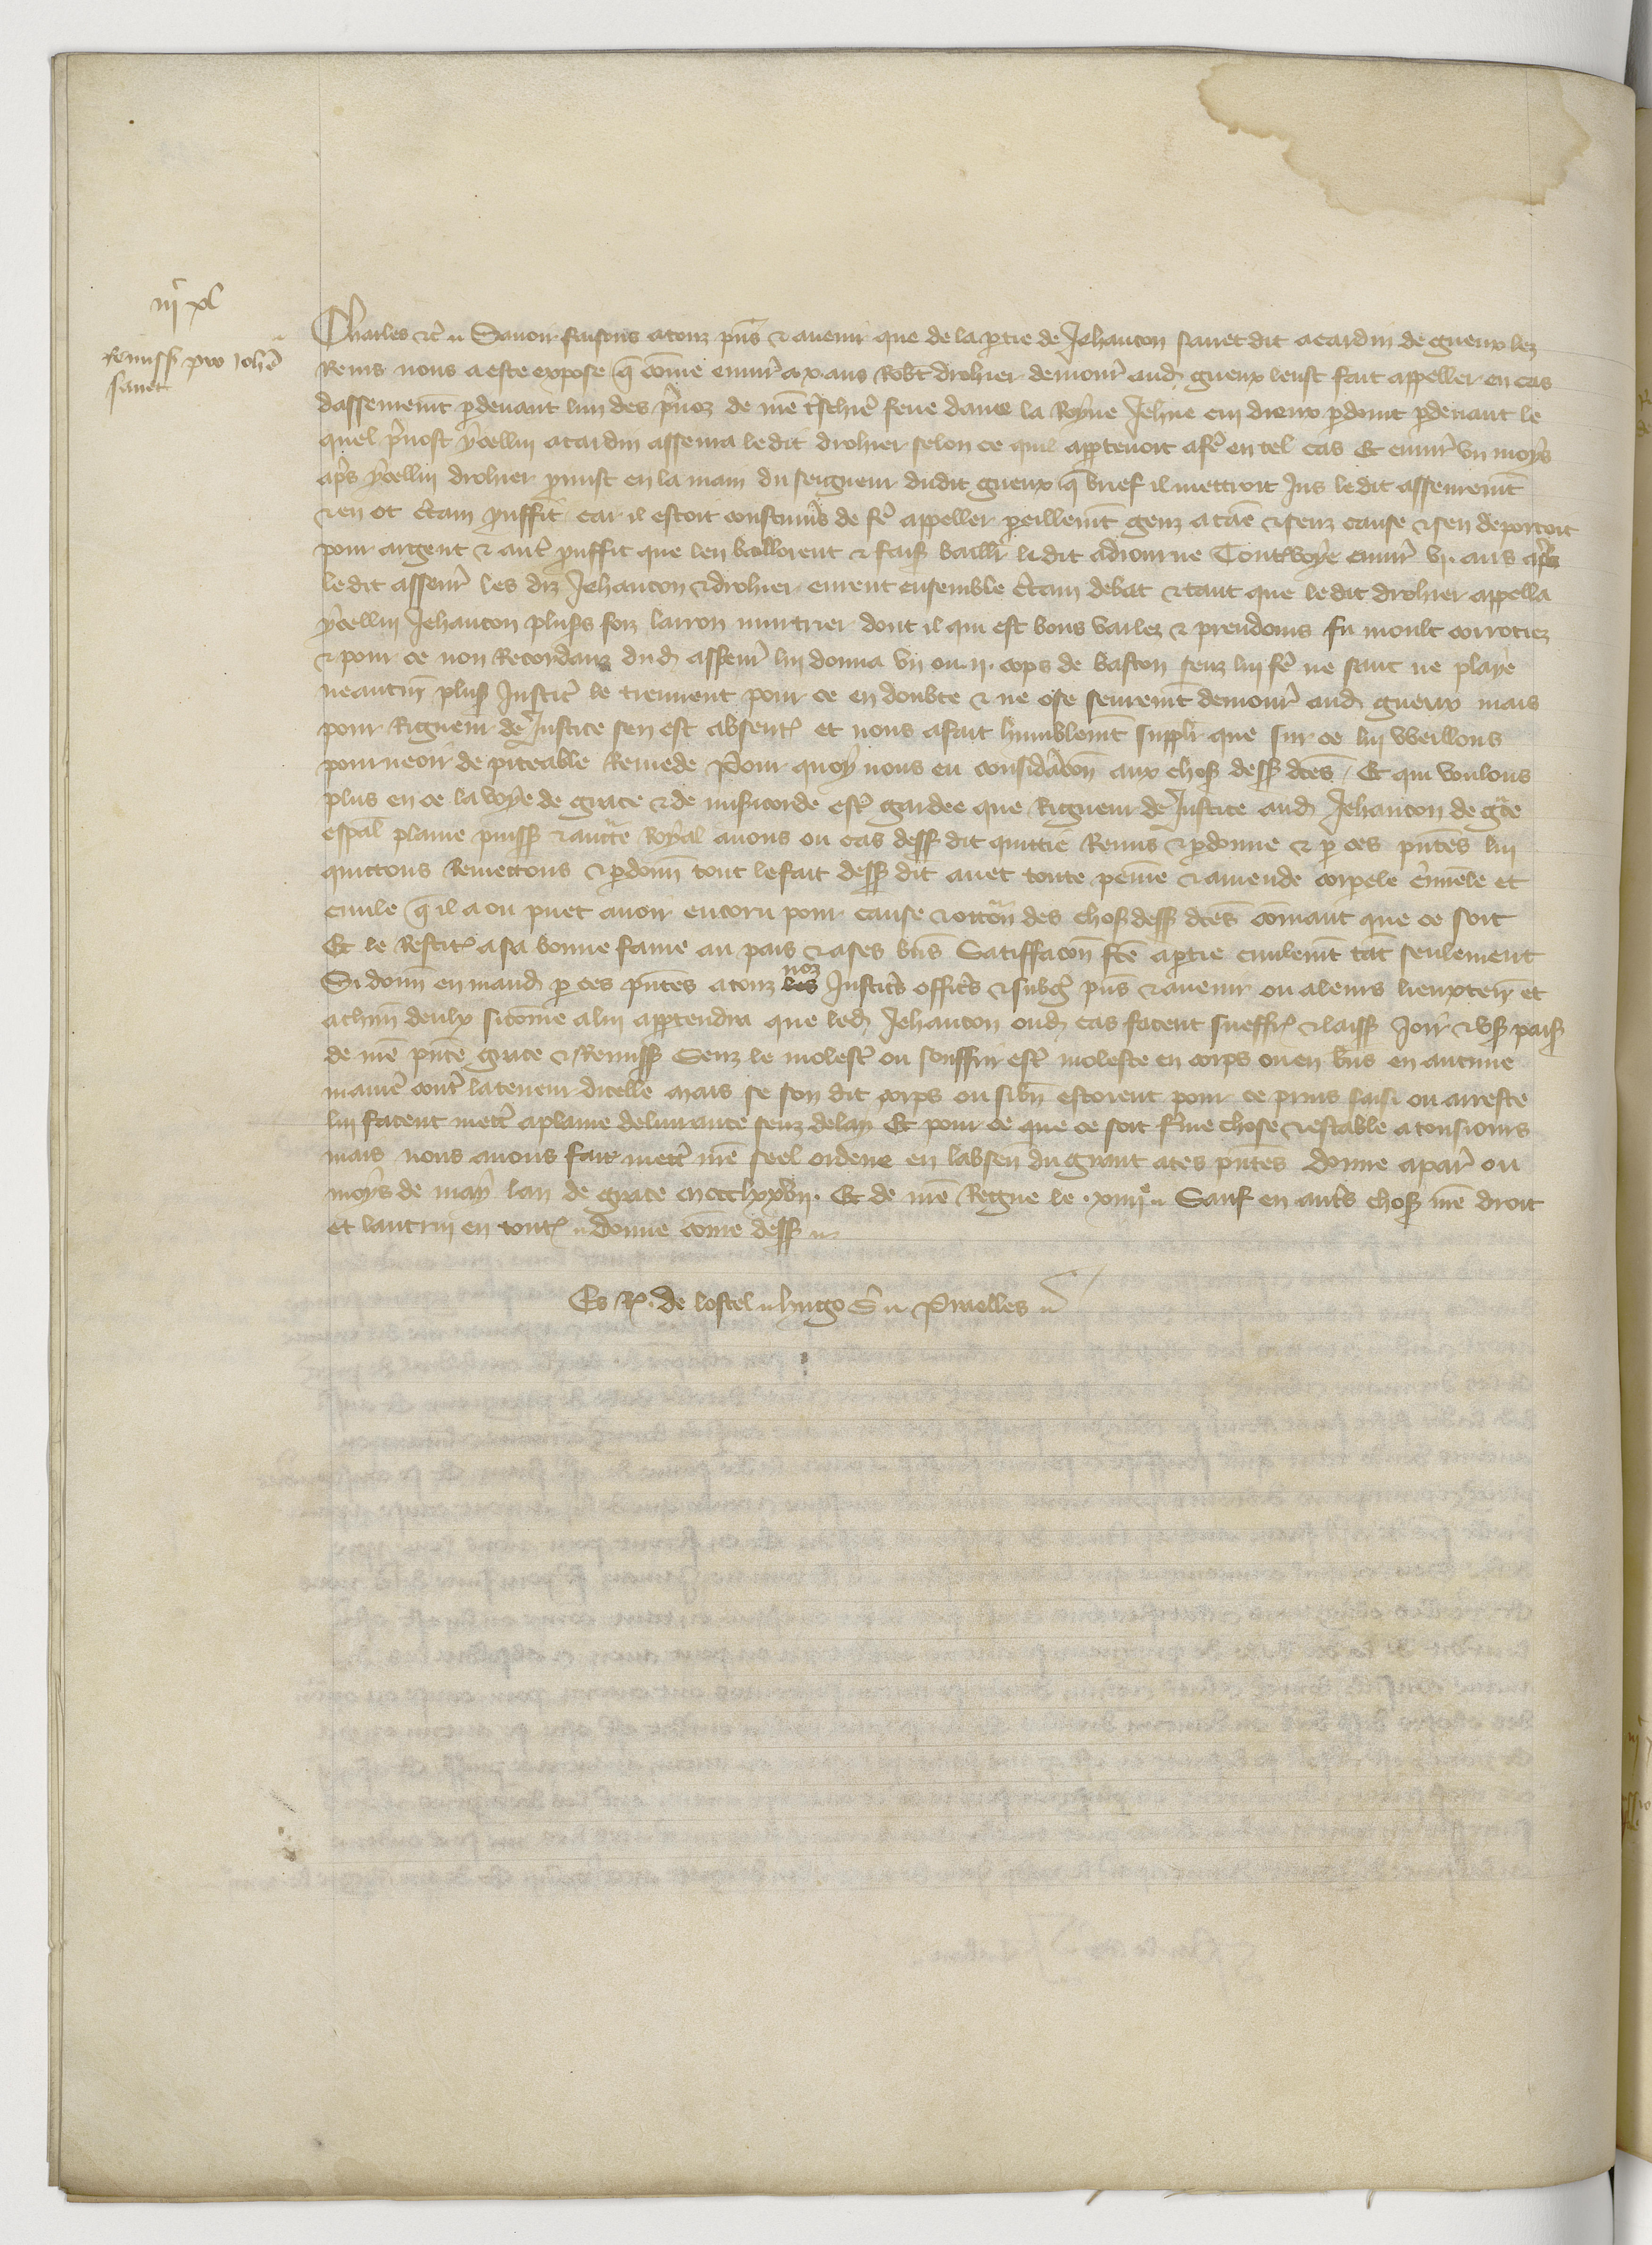 iijᶜ xl
Remiss pro Johē
sauet
Charles etc̄ Sauoir faisons a touz pn̄s et auenir que de la ptie de Jehancon sauet dit acardin de gueux lez
Reins nous a este expose q̄ com̄e enuir̄ a x ans Robt̄ drohier demour̄ aud gueux leust fait appeller en cas
dassemem̄t pdeuant lun des p̄uoz de nr̄e t̄schiē feue dame la Royne Jehne cui dieux pdoint pdeuant le
quel p̄uost ycellui acardin assema ledit drohier selon ce quil apptenoit a fē en tel cas Et enuir̄ un moys
ap̄s ycellui drohier pmist en la main du seigneur dudit gueux q̄ brief il mettroit Jus ledit assemem̄t
et en ot c̄tain pnffit car il estoit coustumīs de fē appeller peillem̄t genz a tāe et senz cause et sen deportoit
pour argent et aut̄ pnffit que len bailloient et fais baillr̄ le dit adiourne Toutesuoye enuir̄ vj ans ap̄s
ledit assem̄ les diz Jehancon et drohier eurent ensemble c̄tain debat et tant que ledit drohier appella
ycellui Jehancon plus̄s foiz larron murtrier dont il qui est bons vallez et preudoms fu moult corrociez
et pour ce non Recordanz dud assem̄ lui donna un ou ij cops de baston senz lui fē ne sanc ne playe
neantm̄ plus Justic̄ le tiennent pour ce en doubte et ne ose seurem̄t demour̄ aud gueux mais
pour Rigueur de Justice sen est absent et nous a fait humblem̄t suppl̄r que sur ce lui vueillons
pourueoir de piteable Remede Pour quoy nous eu considāc̄on aux chos dess dc̄es Et qui voulons
plus en ce la voye de grace et de misicorde est̄ gardee que Rigueur de Justice aud Jehancon de gc̄e
esp̄al plaine puiss et auct̄e Royal auons ou cas dess dit quittie Remis et pdonne et p ces pn̄tes lui
quittons Remettons et pdon̄n tout le fait dess dit auec toute peinne et amende corpele c̄im̄ele et
ciuile q̄ il a ou puet auoir encoru pour cause et occōn des chos dess dc̄es com̄ant que ce soit
Et le Restit a sa bonne fame au pais et a ses bn̄s Satiffacōn fc̄e a ptie ciulem̄t tāt seulement
Si donn̄ en mand p ces pn̄tes a touz les noz Justic̄s offic̄s et subḡ pn̄s et auenir ou a leurs lieuxten̄ et
a chm̄ deulx sicom̄e a lui apptendra que led Jehancon oud cas facent sueffr̄ et laiss Joir̄ et us pais
de nr̄e pn̄te grace et Remiss Senz le molest̄ ou souffrir est̄ moleste en corps ou en bn̄s en aucune
manier̄ cont̄ la teneur dicelle Mais se son dit corps ou si bn̄ estoient pour ce prins saisi ou arreste
lui facent mett̄ a plaine deliurance senz delay Et pour ce que ce soit f̄me chose et estable a tousiours
mais nous auons fait mett̄ nr̄e seel ordene en labsen du grant a ces pn̄tes donne a par̄ ou
moys de may lan de grace mccclxxvij Et de nr̄e Regne le xiiijᵉ Sauf en aut̄s chos nr̄e droit
et lautrui en tout Donne com̄e dess
Es R̄ de lostel hugo S̄ Piuelles